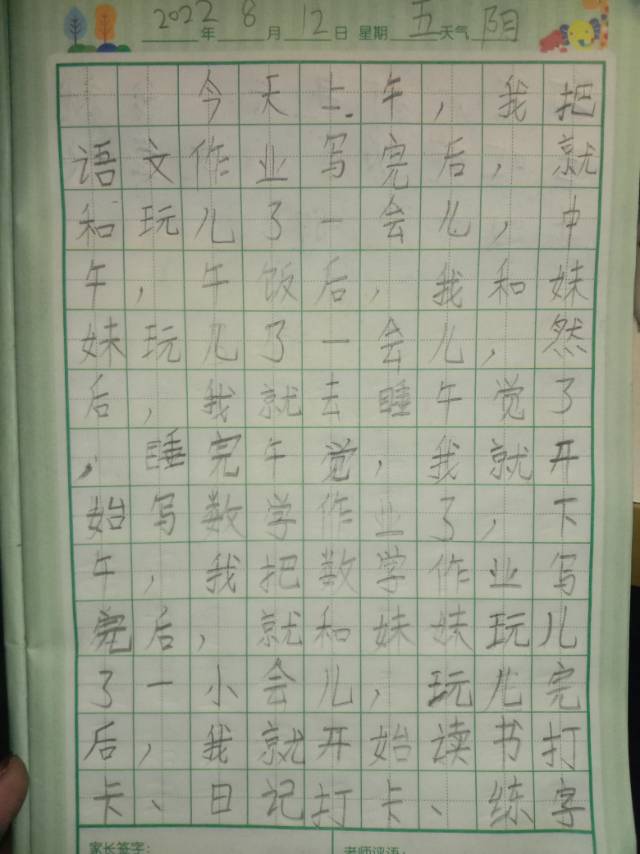 2022年8月12日 星期五天气阴
今天上午，我把
语文作业写完后，就
和玩儿了一会儿，中
午，午饭后，我和妹
妹玩儿了一会儿，然
后，我就去睡午觉了
，睡完午觉，我就开
始写数学作业了，下
午，我把数学作业写
完后，就和妹妹玩儿
了一小会儿，玩儿完
后，我就开始读书打
卡、日记打卡、练字
家长签字： 老师评语：